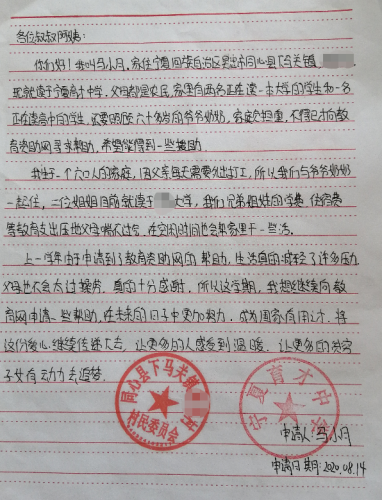 各位叔叔阿姨:
你们好!我叫马小月,家住宁夏回族自治区吴忠市同心县下马关镇
现就读于宁夏育才中学,父母都是农民,家里有两名正在读一本大学的学生和一名
正在读高中的学生,还要照顾六十多岁的爷爷奶奶,家庭负担重,不得已才向教
育资助网寻求帮助,希望能得到一些援助。
我生于一个六口人的家庭,因父母每天需要外出打工,所以我们与爷爷奶奶
一起住,二位姐姐目前就读于 大学,我们兄弟姐妹的学费、住宿费
等教育支出压
上一学年由于申请到了教育资助网的帮助,生活真的减轻了许多压力
父母也不会太过操劳,真的十分感谢,所以这学期,我想继续向教
育网申请一些帮助,在未来的日子中更加努力,成为国家有用人才,将
这份爱心继续传递下去,让更多的人感受到温暖,让更多的寒窗
子女有动力去追梦。
同心县下马关镇
村民委员会
宁夏育才中学
申请人:马小月
申请日期:2020.08.14